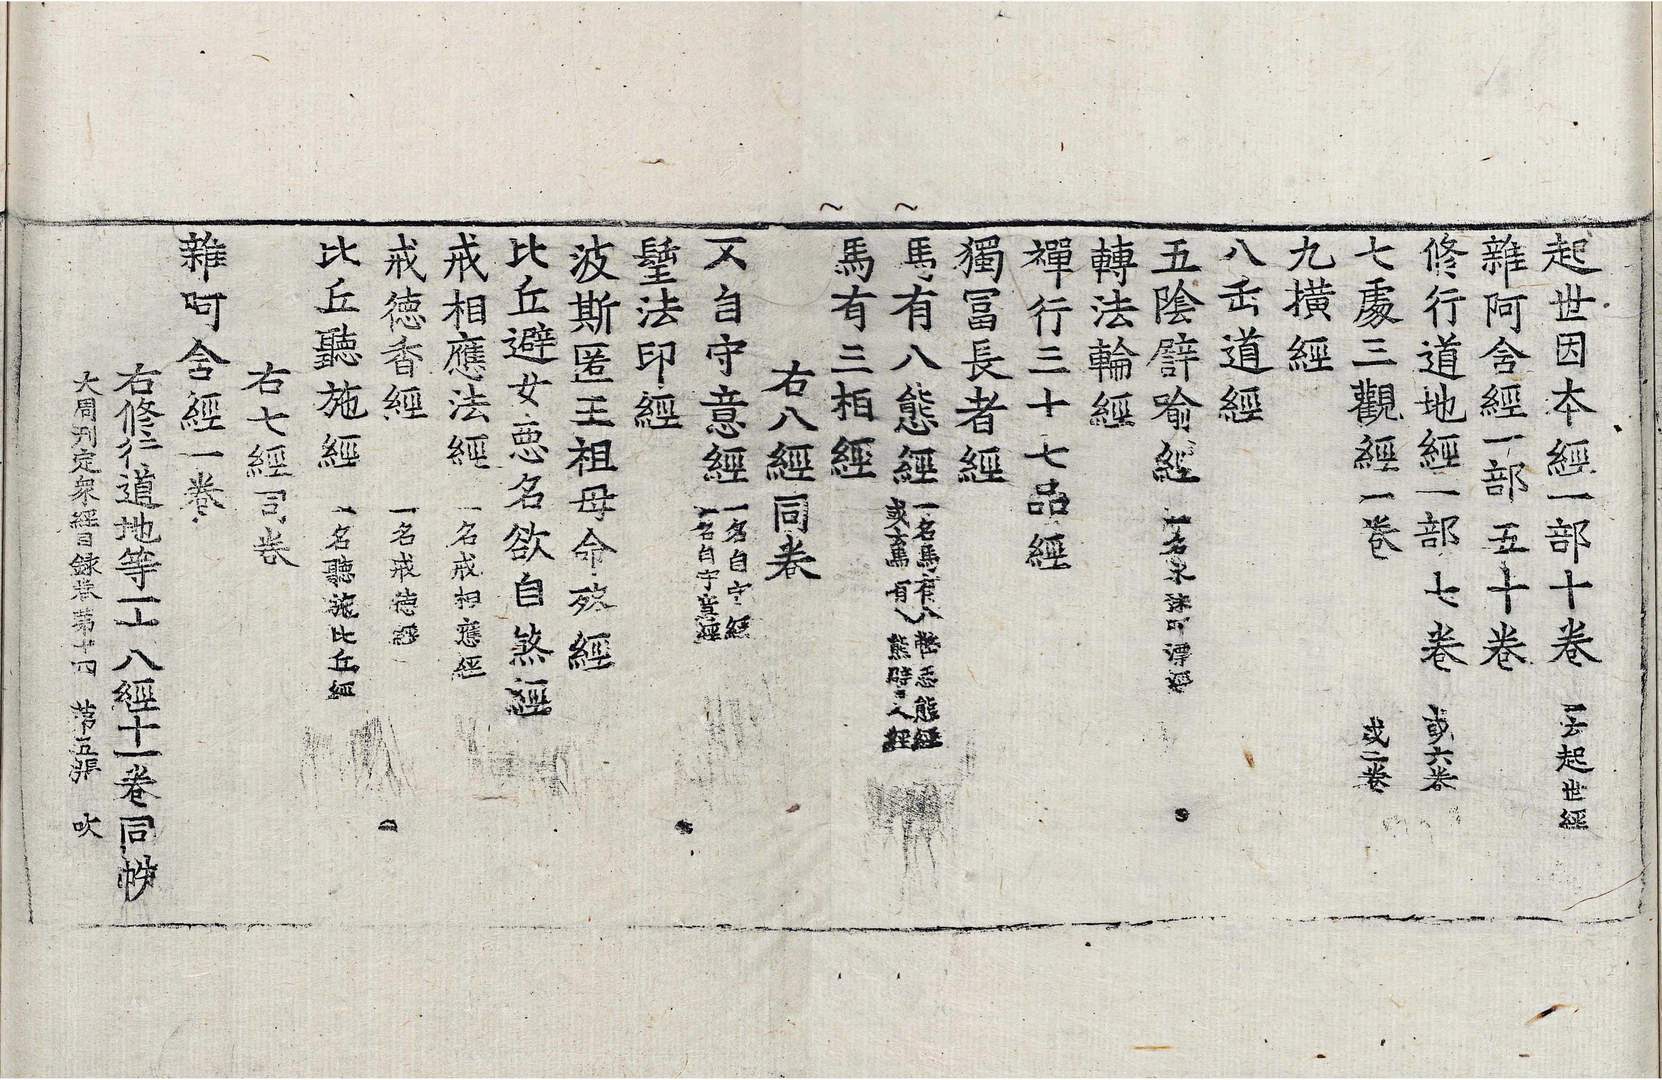 起世因本經一部十卷 一云起世經
雜阿含經一部五十卷
修行道地經一部七卷 或六卷
七處三觀經一卷 或二卷
九橫經
八正道經
五陰譬喻經 一名水沫所漂經
轉法輪經
禪行三十七品經
獨冨長者經
馬有八態經 一名馬有八弊惡態經 或云馬有八態譬人經
馬有三相經
右八經同卷
又自守意經 一名自守經 一名自守意經
聖法印經
波斯匿王祖母命殁經
比丘避女惡名欲自煞經
戒相應法經 一名戒相應經
戒德香經 一名戒德經
比丘聽施經 一名聽施比丘經
右七經同卷
雜呵含經一卷
右修行道地等一十八經十一卷同帙
大周刊定衆經目録卷第十四 第五張 吹